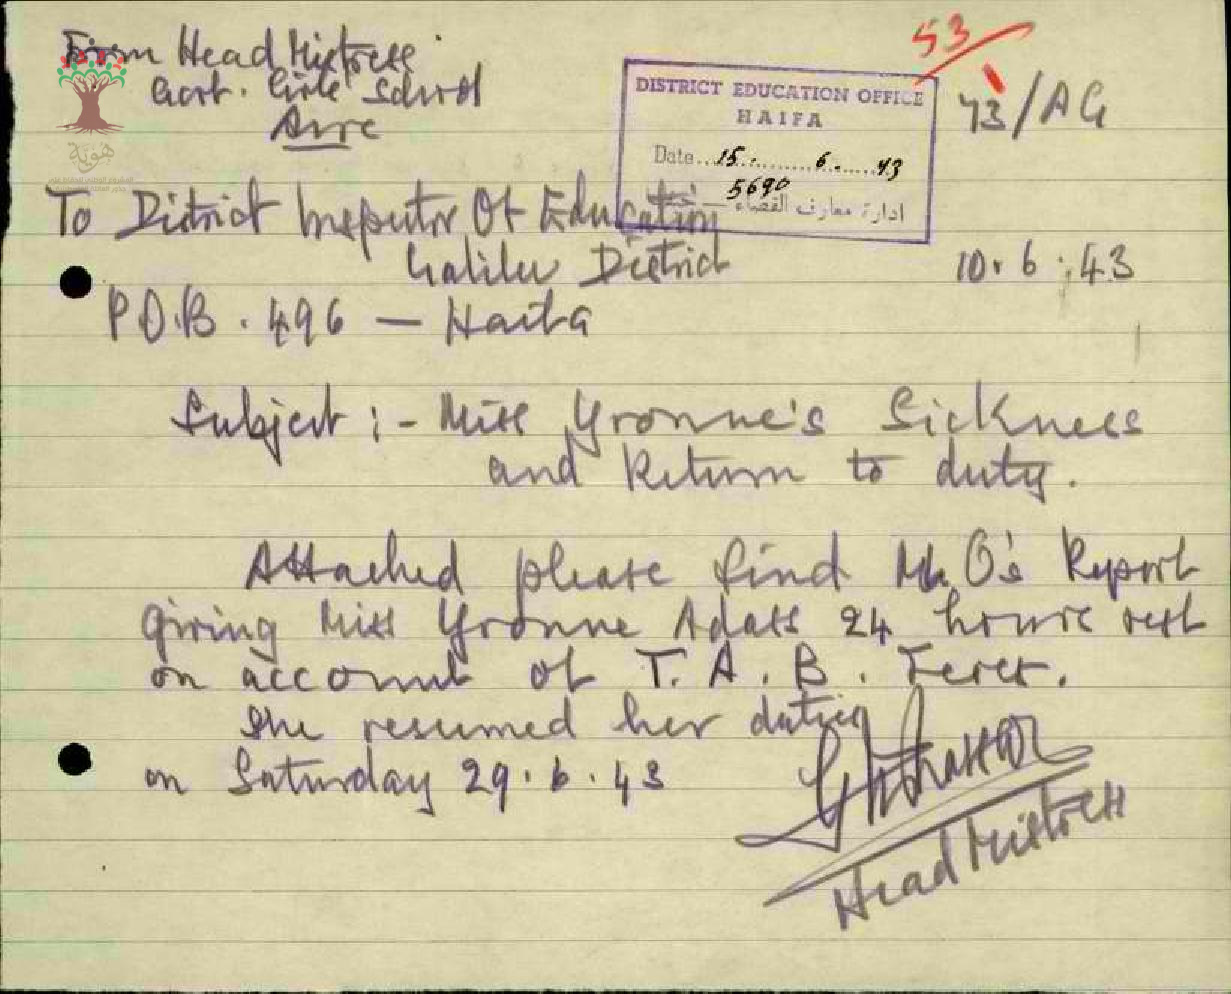 From Head Mistress
Govt. Girls' School
Acre
53
43/AG
DISTRICT EDUCATION OFFICE
HAIFA
Date 15. 6. 43
5690
ادارة معارف القضاء —
هوية
To District Inspector Of Education
Galilee District
10.6.43
P.O.B. 496 — Haifa
Subject :- Miss Yvonne's Sickness
and Return to duty.
Attached please find M.O's Report
giving Miss Yvonne Adass 24 hours rest
on account of T.A.B. Fever.
She resumed her duties
on Saturday 29.6.43
Head Mistress